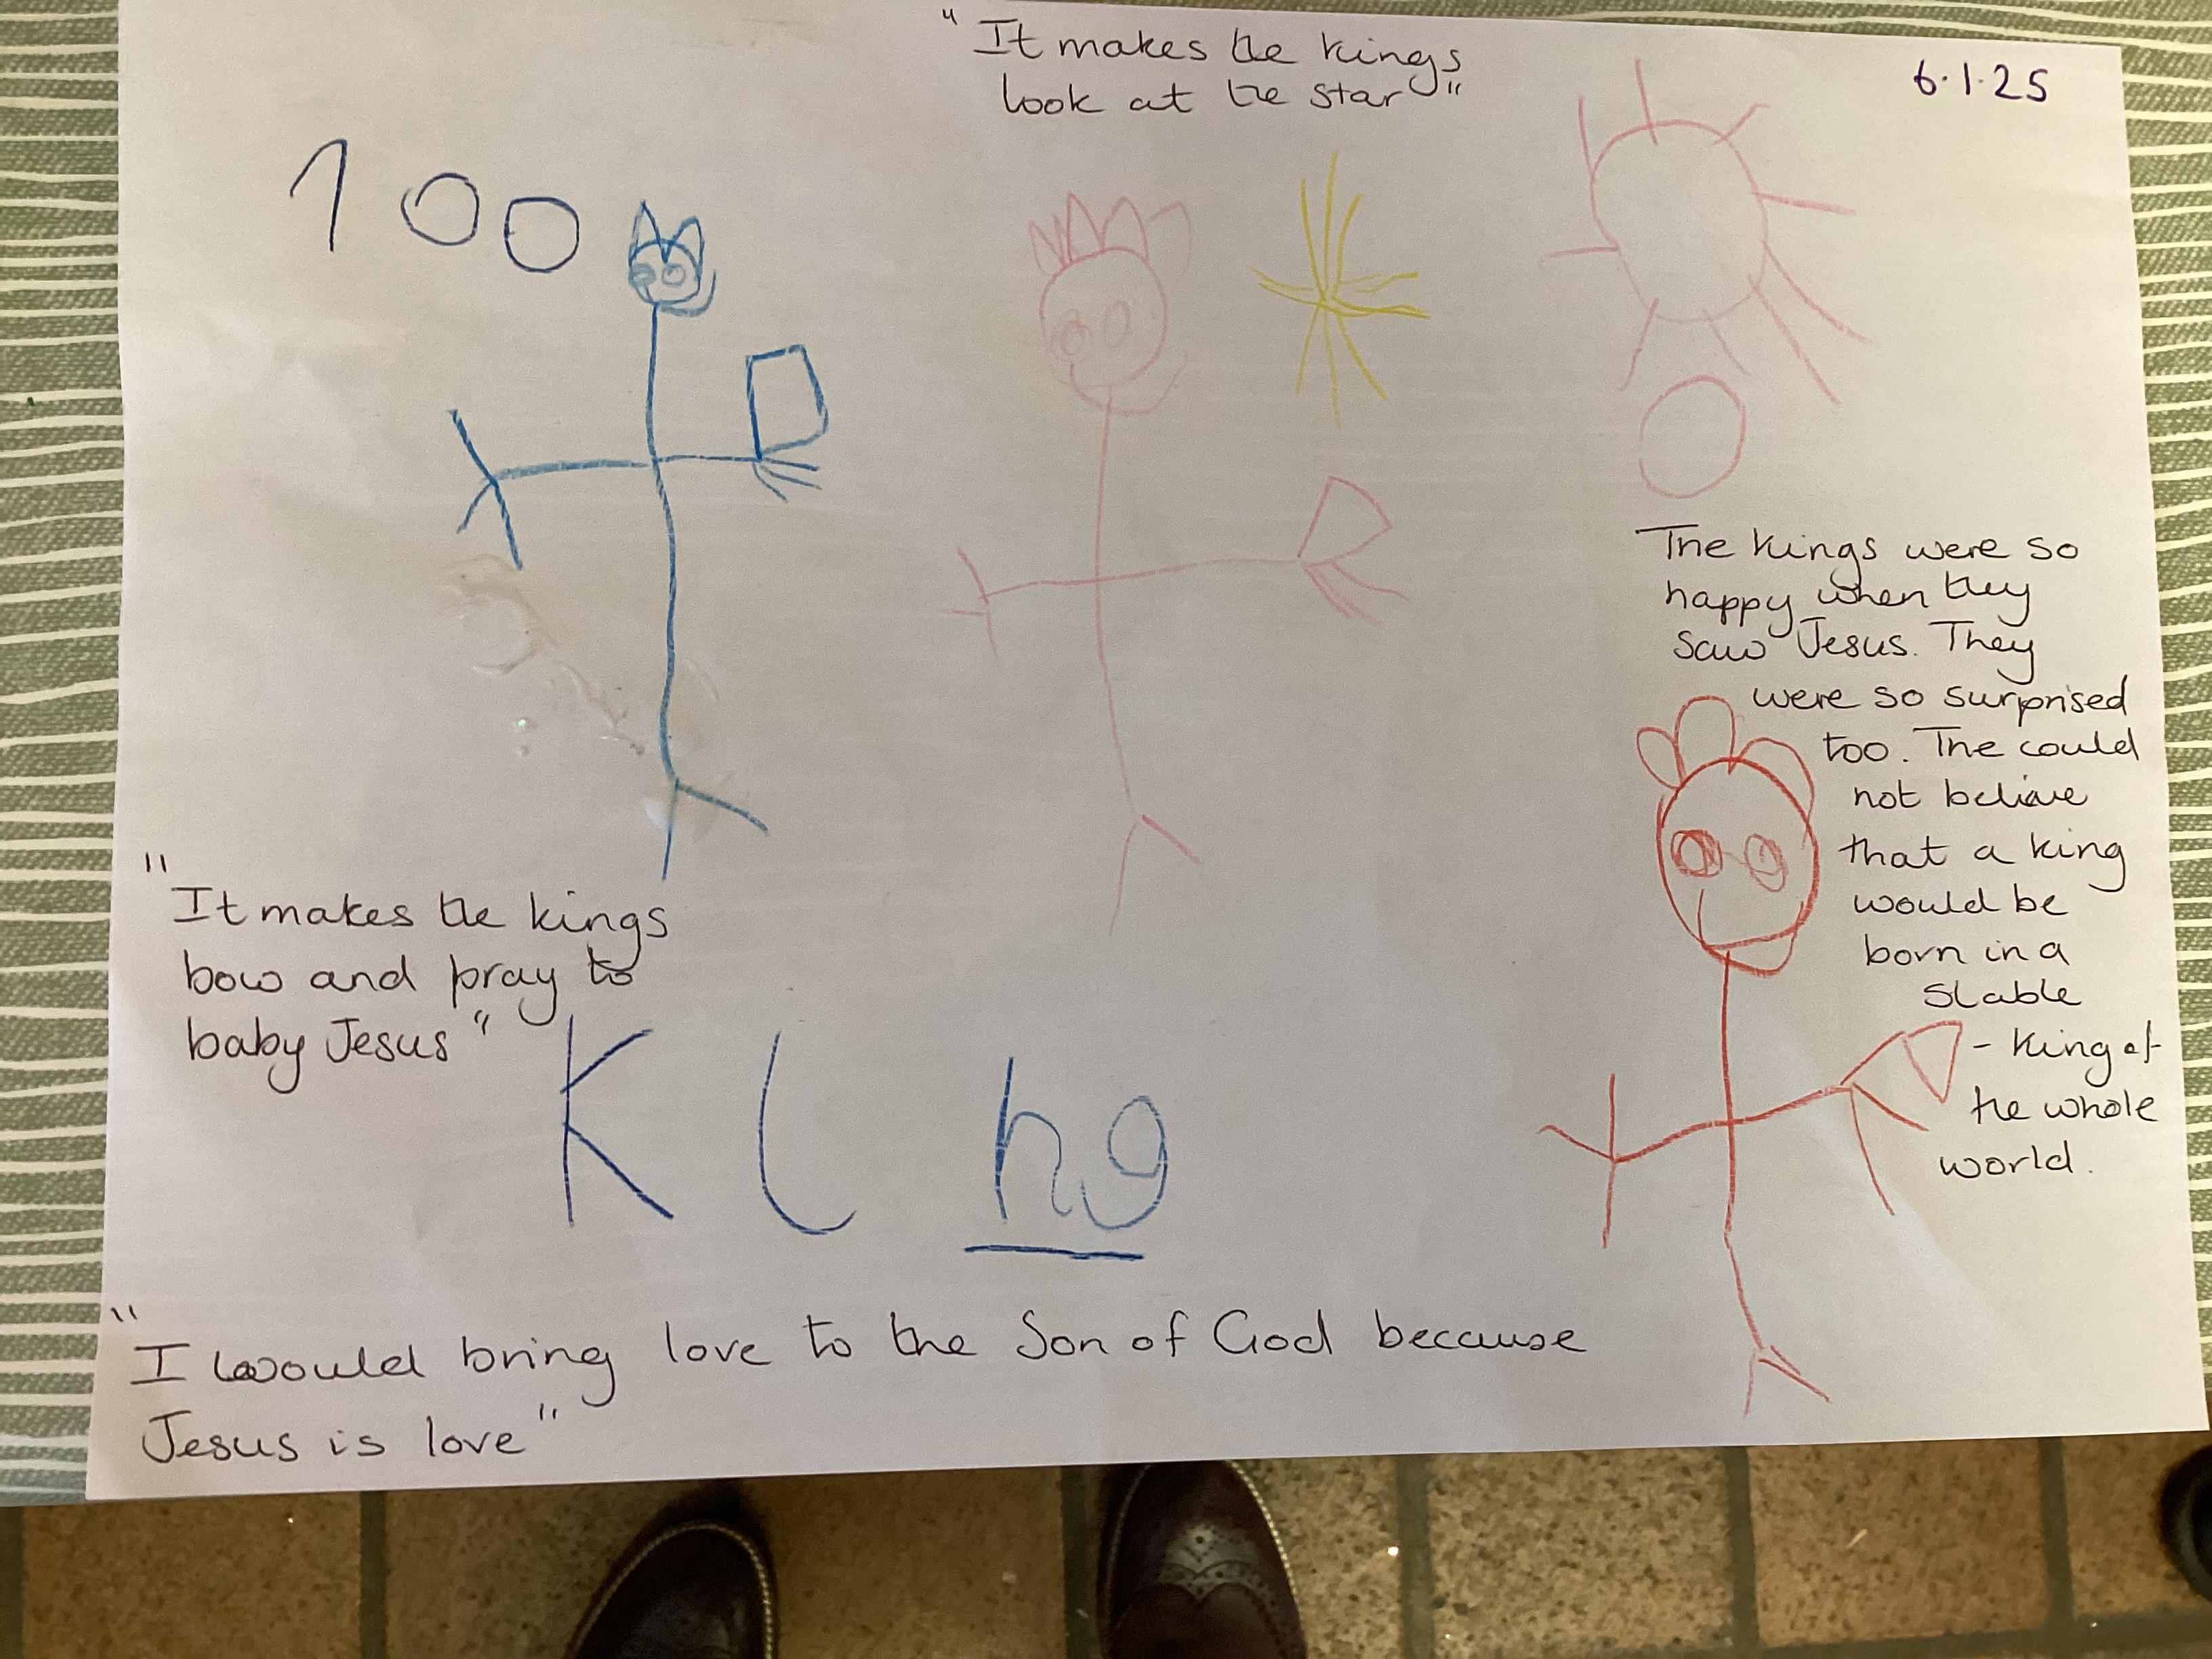 "It makes the kings
look at the star"
6.1.25
100
The kings were so
happy when they
saw Jesus. They
were so surprised
too. The could
not believe
that a king
would be
born in a
stable
- King of
the whole
world.
"It makes the kings
bow and pray to
baby Jesus"
King
"I would bring love to the Son of God because
Jesus is love"